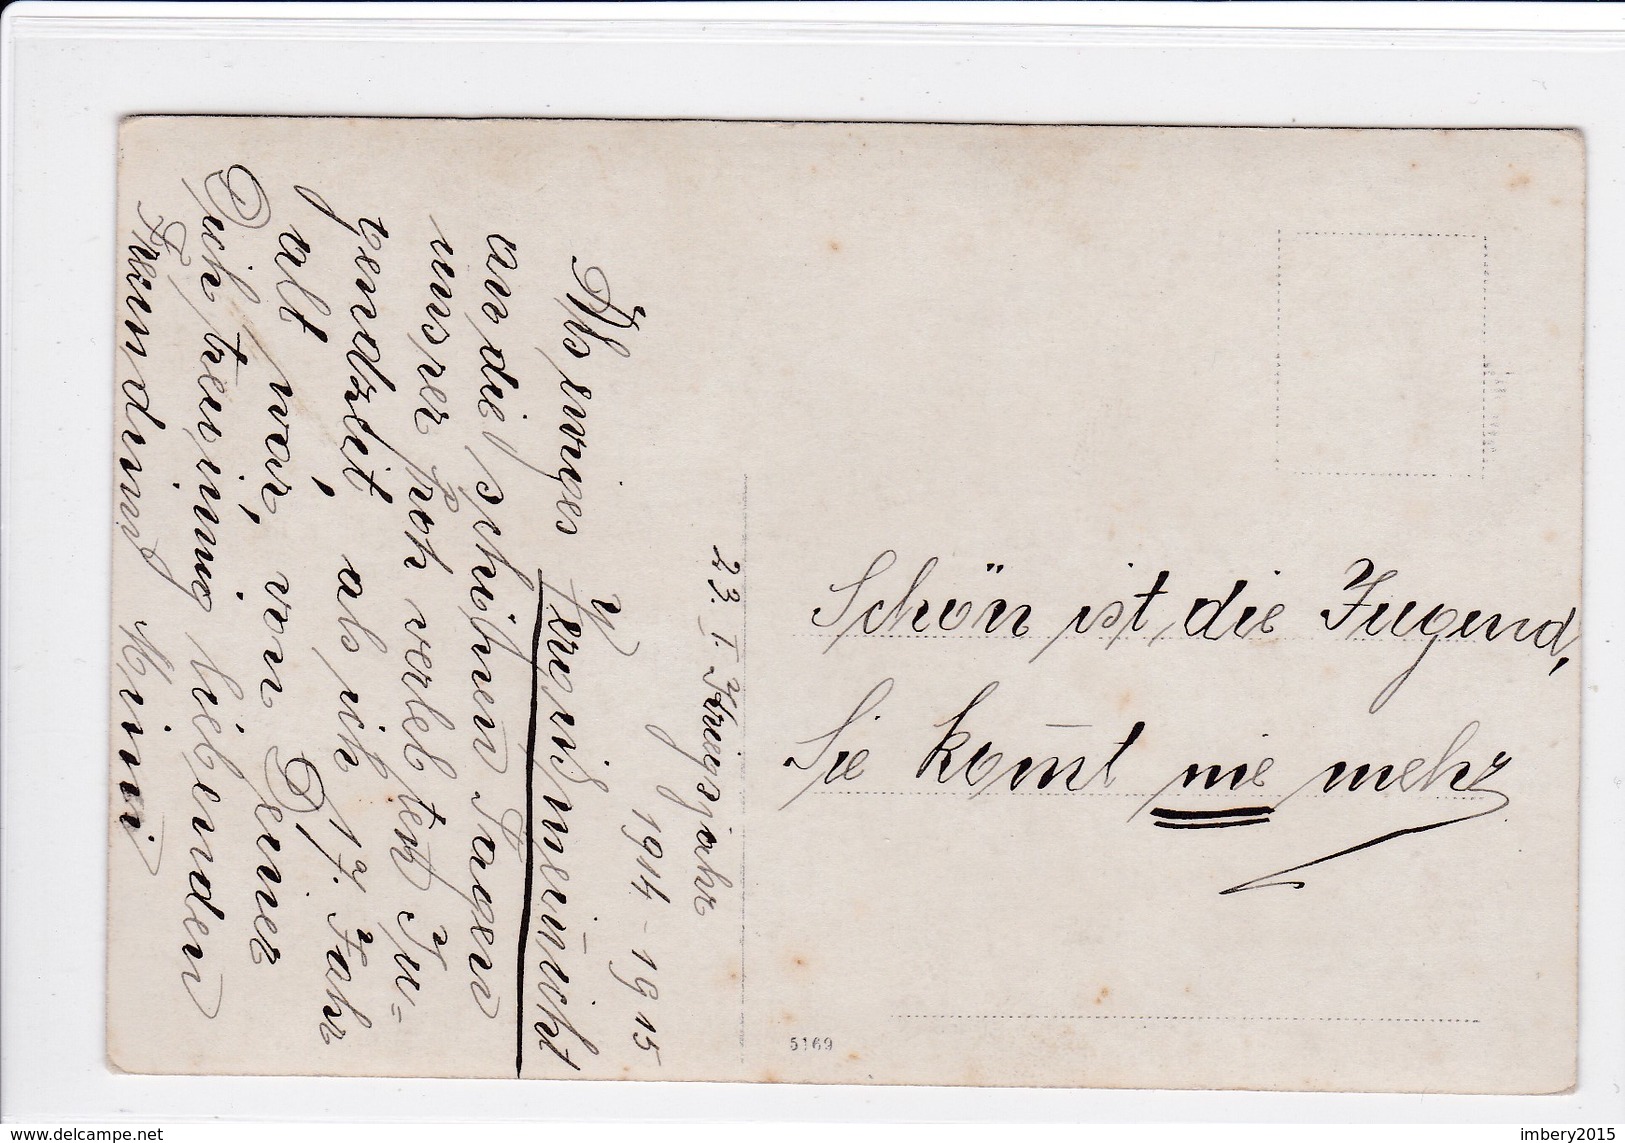 23. I. Kriegsjahr
1914-1915
Als ewiges
Vergißmeinnicht
an die schönen Tagen
unsrer froh verlebten Ju=
gendzeit, als ich 17. Jahr
alt war, von Deiner
Dich treu innig liebenden
Freundin Mimi
Schön ist die Jugend,
Sie kom̅t nie mehr
5169
www.delcampe.net
imbery2015